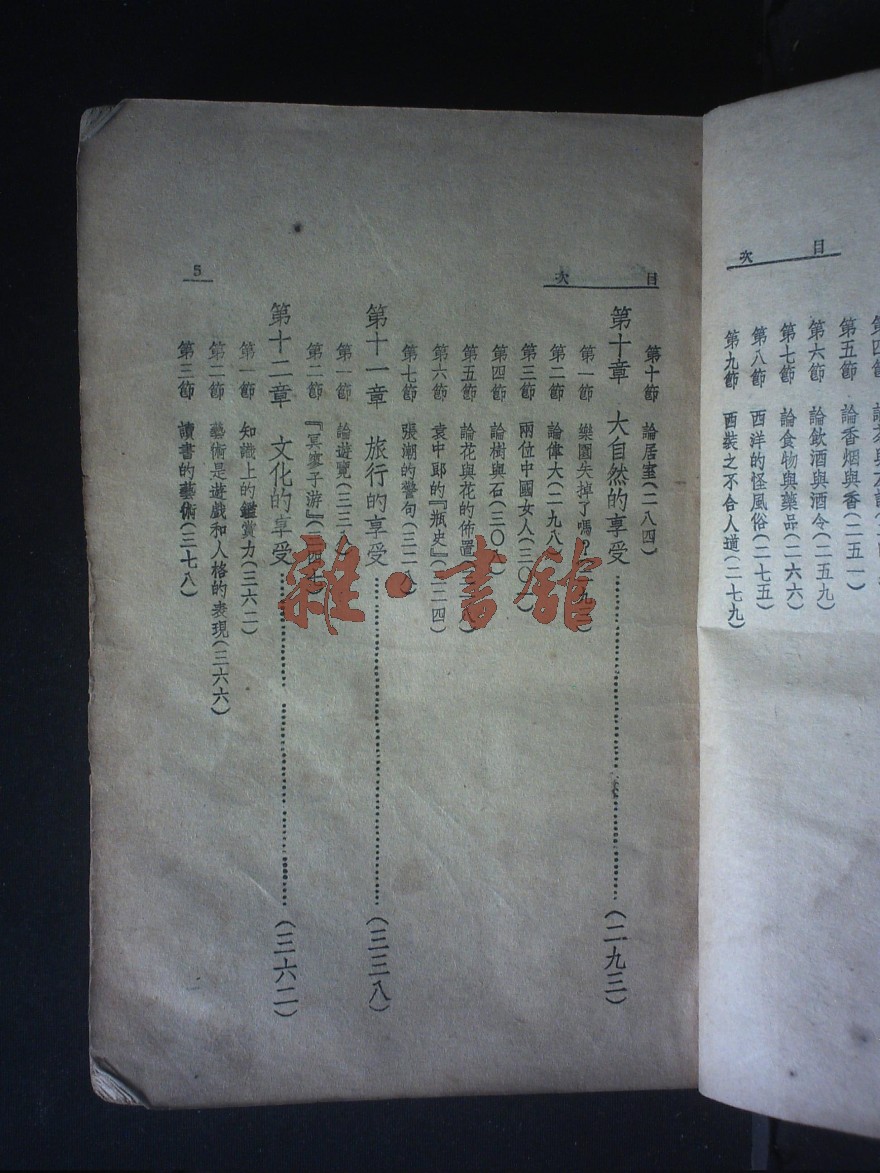 目次
第五節 論香烟與香(二五一)
第六節 論飲酒與酒令(二五九)
第七節 論食物與藥品(二六六)
第八節 西洋的怪風俗(二七五)
第九節 西裝之不合人道(二七九)
目次
第十節 論居室(二八四)
第十章 大自然的享受(二九三)
第一節 樂園失掉了嗎?
第二節 論偉大(二九八)
第三節 兩位中國女人
第四節 論樹與石(三〇
第五節 論花與花的佈置
第六節 袁中郎的『瓶史』
第七節 張潮的警句(三二八)
第十一章 旅行的享受(三三八)
第一節 論遊覽(三三八)
第二節 『冥寥子游』
第十二章 文化的享受(三六二)
第一節 知識上的鑑賞力(三六二)
第二節 藝術是遊戲和人格的表現(三六六)
第三節 讀書的藝術(三七八)
5
雜·書館